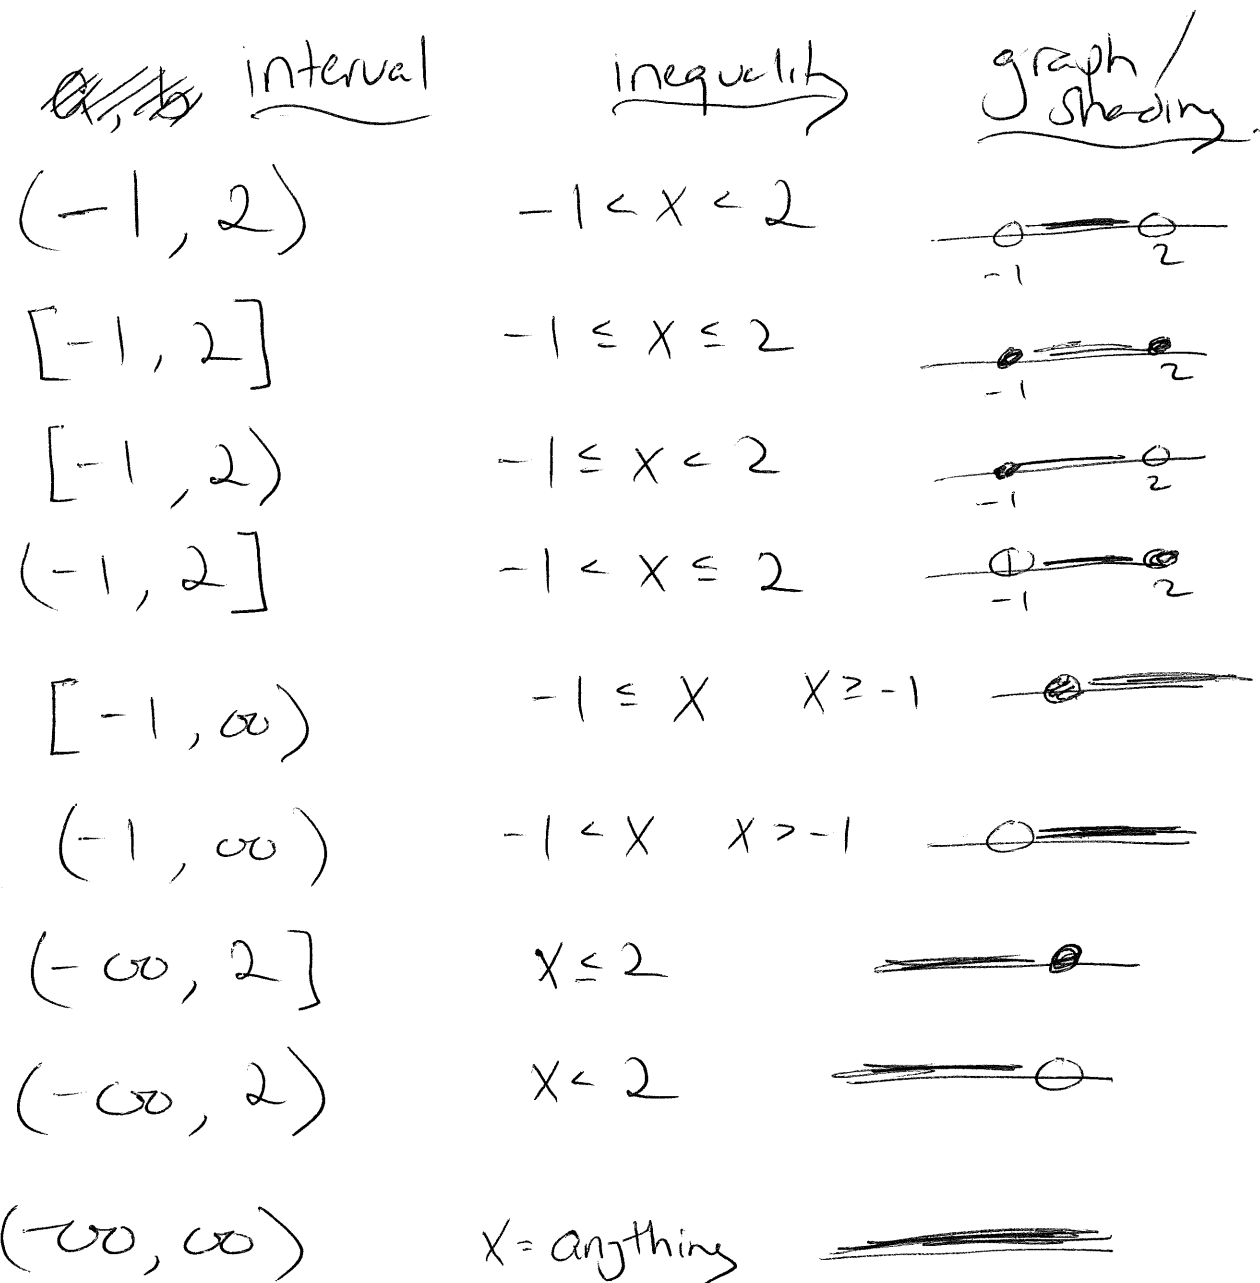 interval inequality graph / shading
(-1, 2) -1 < x < 2
-1 2
[-1, 2] -1 ≤ x ≤ 2
-1 2
[-1, 2) -1 ≤ x < 2
-1 2
(-1, 2] -1 < x ≤ 2
-1 2
[-1, ∞) -1 ≤ x x ≥ -1
(-1, ∞) -1 < x x > -1
(-∞, 2] x ≤ 2
(-∞, 2) x < 2
(-∞, ∞) x = anything